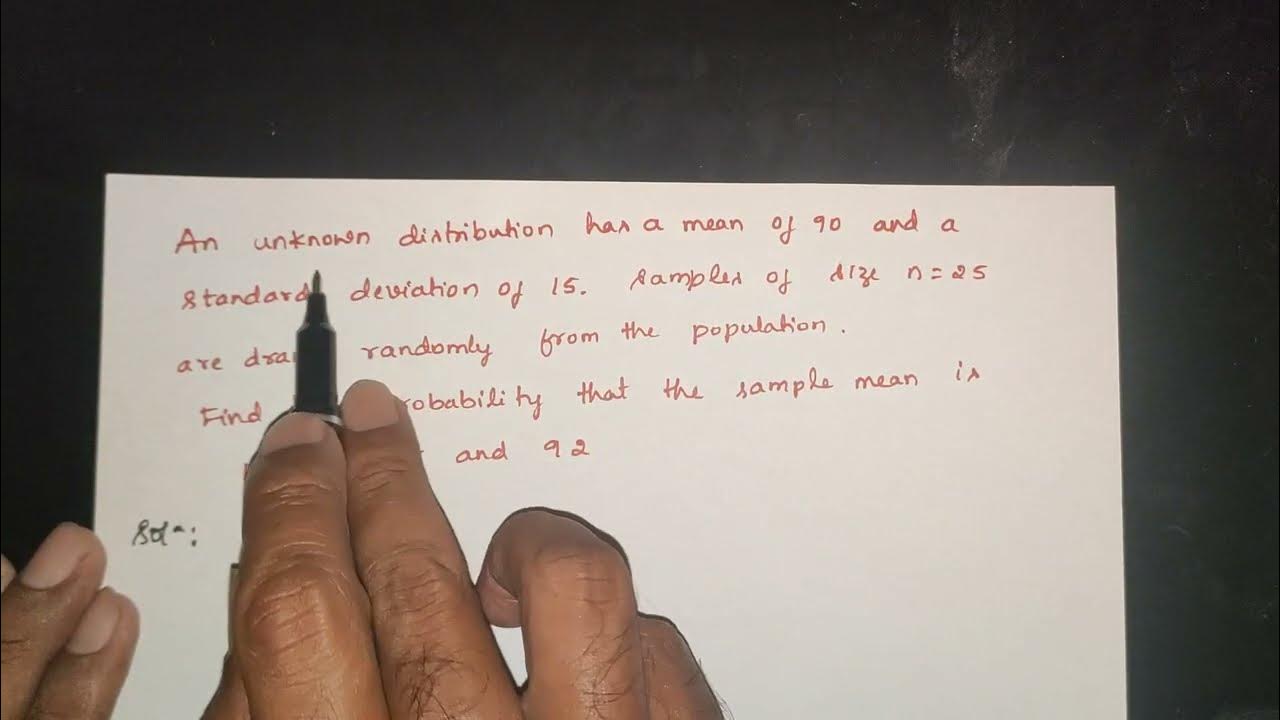 An unknown distribution has a mean of 90 and a
standard deviation of 15. samples of size n = 25
are randomly from the population.
Find that the sample mean is
and 92
Sol^n: